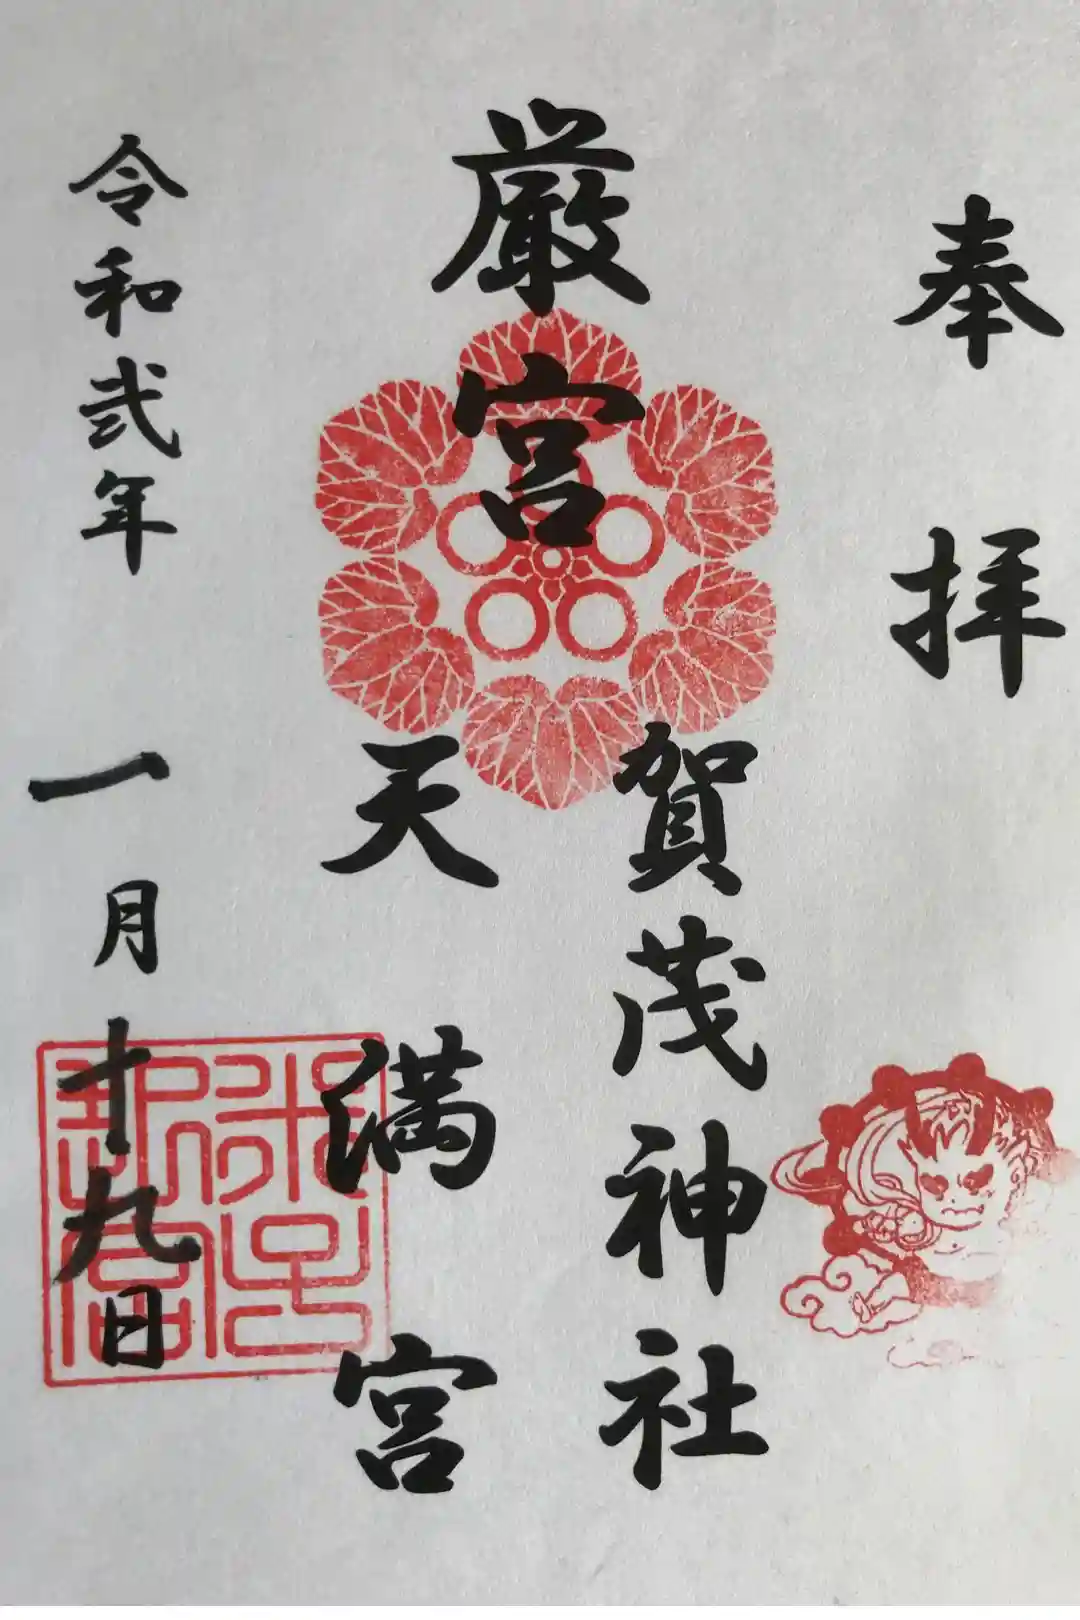 奉拝
厳宮
賀茂神社
天満宮
令和弐年 一月十九日